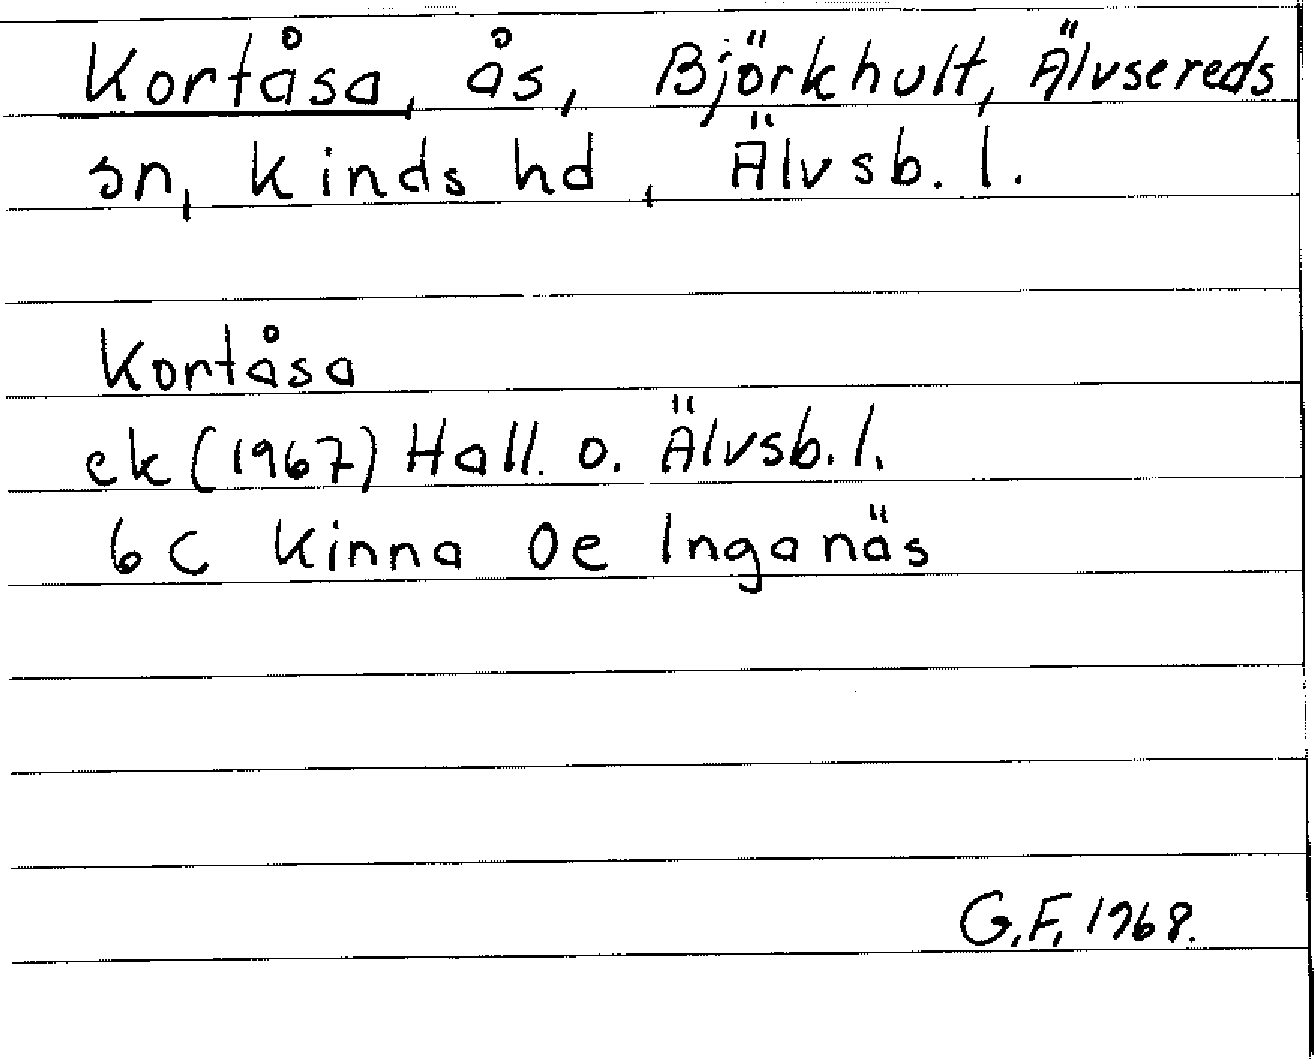 Kortåsa, ås, Björkhult, Älvsereds
sn, Kinds hd, Älvsb. l.
Kortåsa
ek (1967) Hall. o. Älvsb. l.
6 C Kinna 0e Inganäs
G.F, 1968.